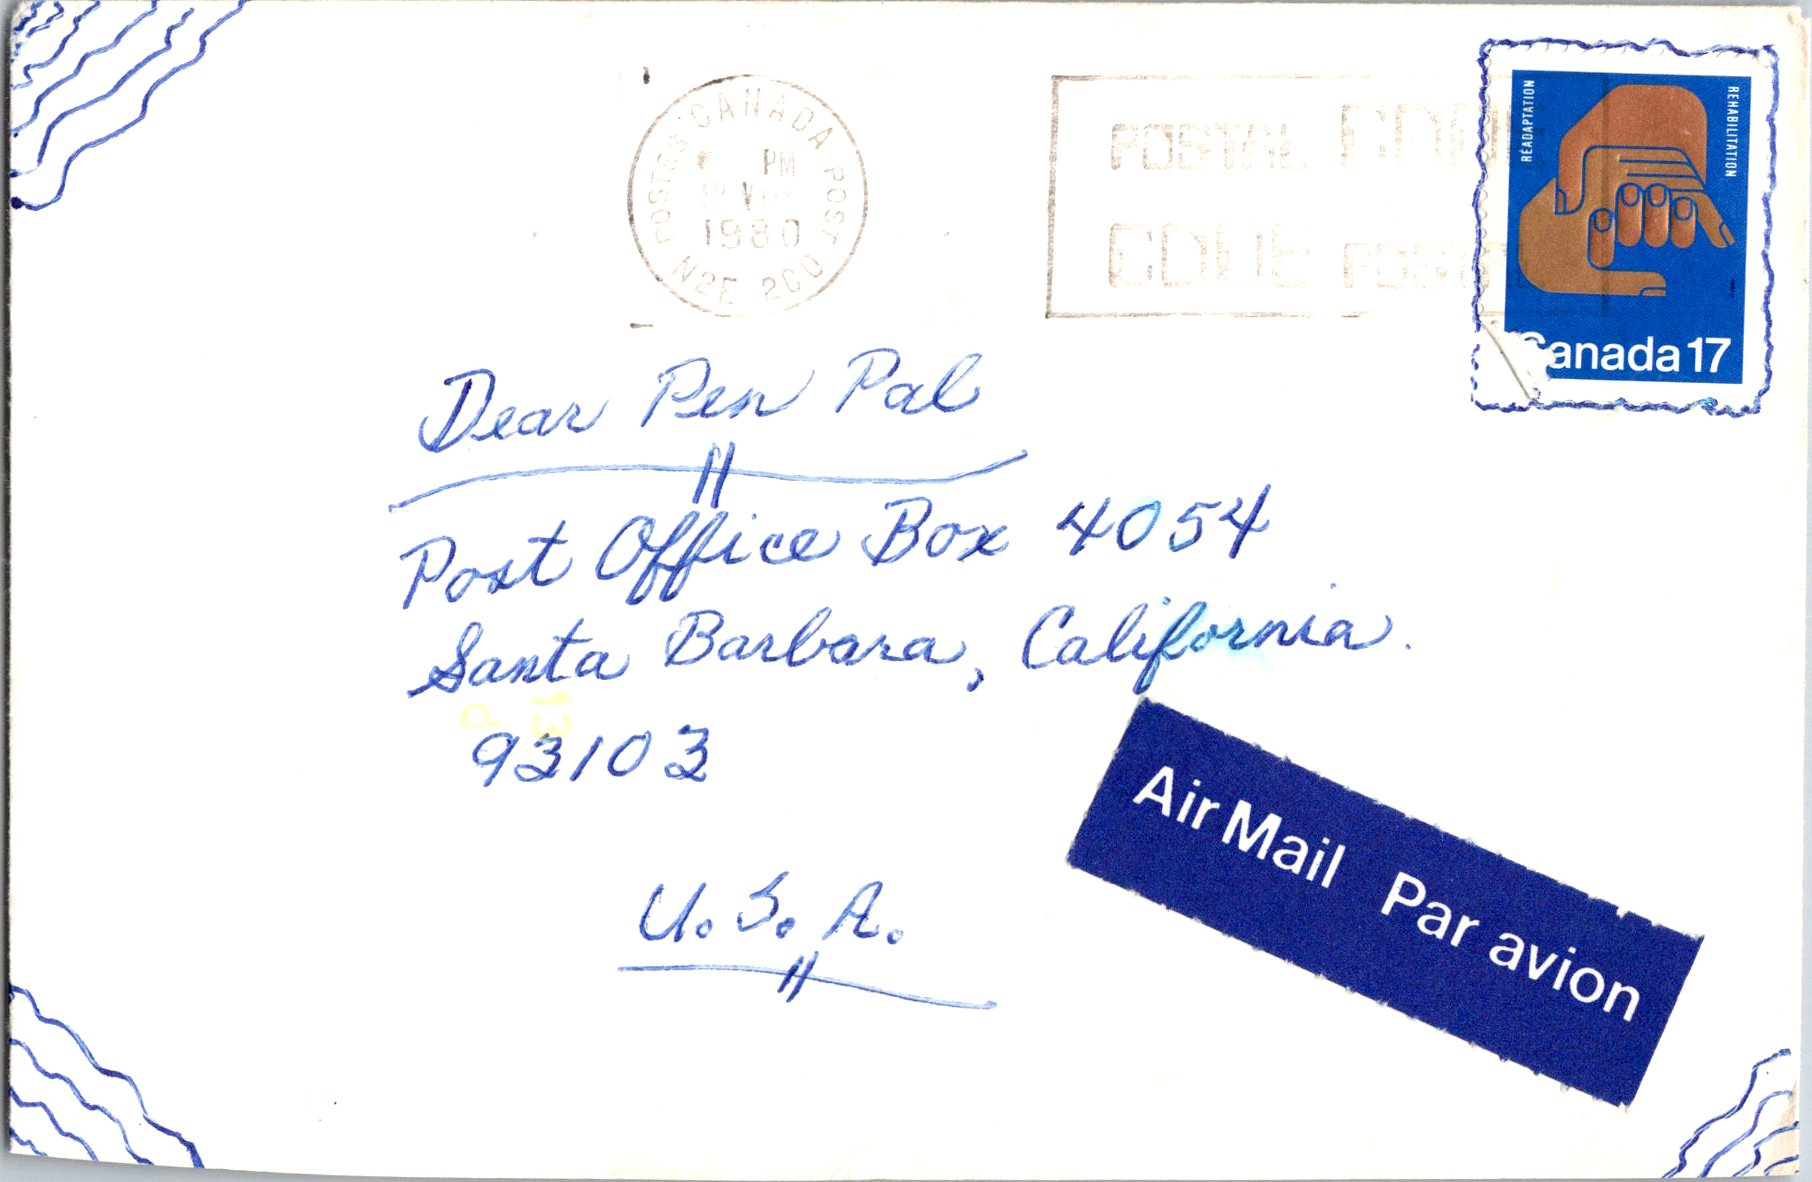 POSTES CANADA POST
PM
1980
N2E 2C0
POSTAL
CODE
RÉADAPTATION
REHABILITATION
Canada 17
Dear Pen Pal
Post Office Box 4054
Santa Barbara, California.
93103
U.S.A.
Air Mail Par avion